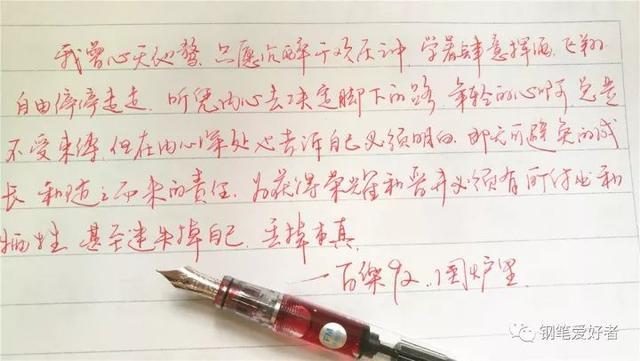 我曾心无旁骛,只愿沉醉于欢庆之中,学着肆意挥洒,飞翔
自由停停走走,听凭内心去决定脚下的路,年轻的心啊总是
不受束缚,但在内心深处也告诉自己必须明白,那无可避免的成
长和随之而来的责任,为获得荣耀和晋升必须有所付出和
牺牲,甚至迷失掉自己,丢掉本真.
——百乐92.
钢笔爱好者